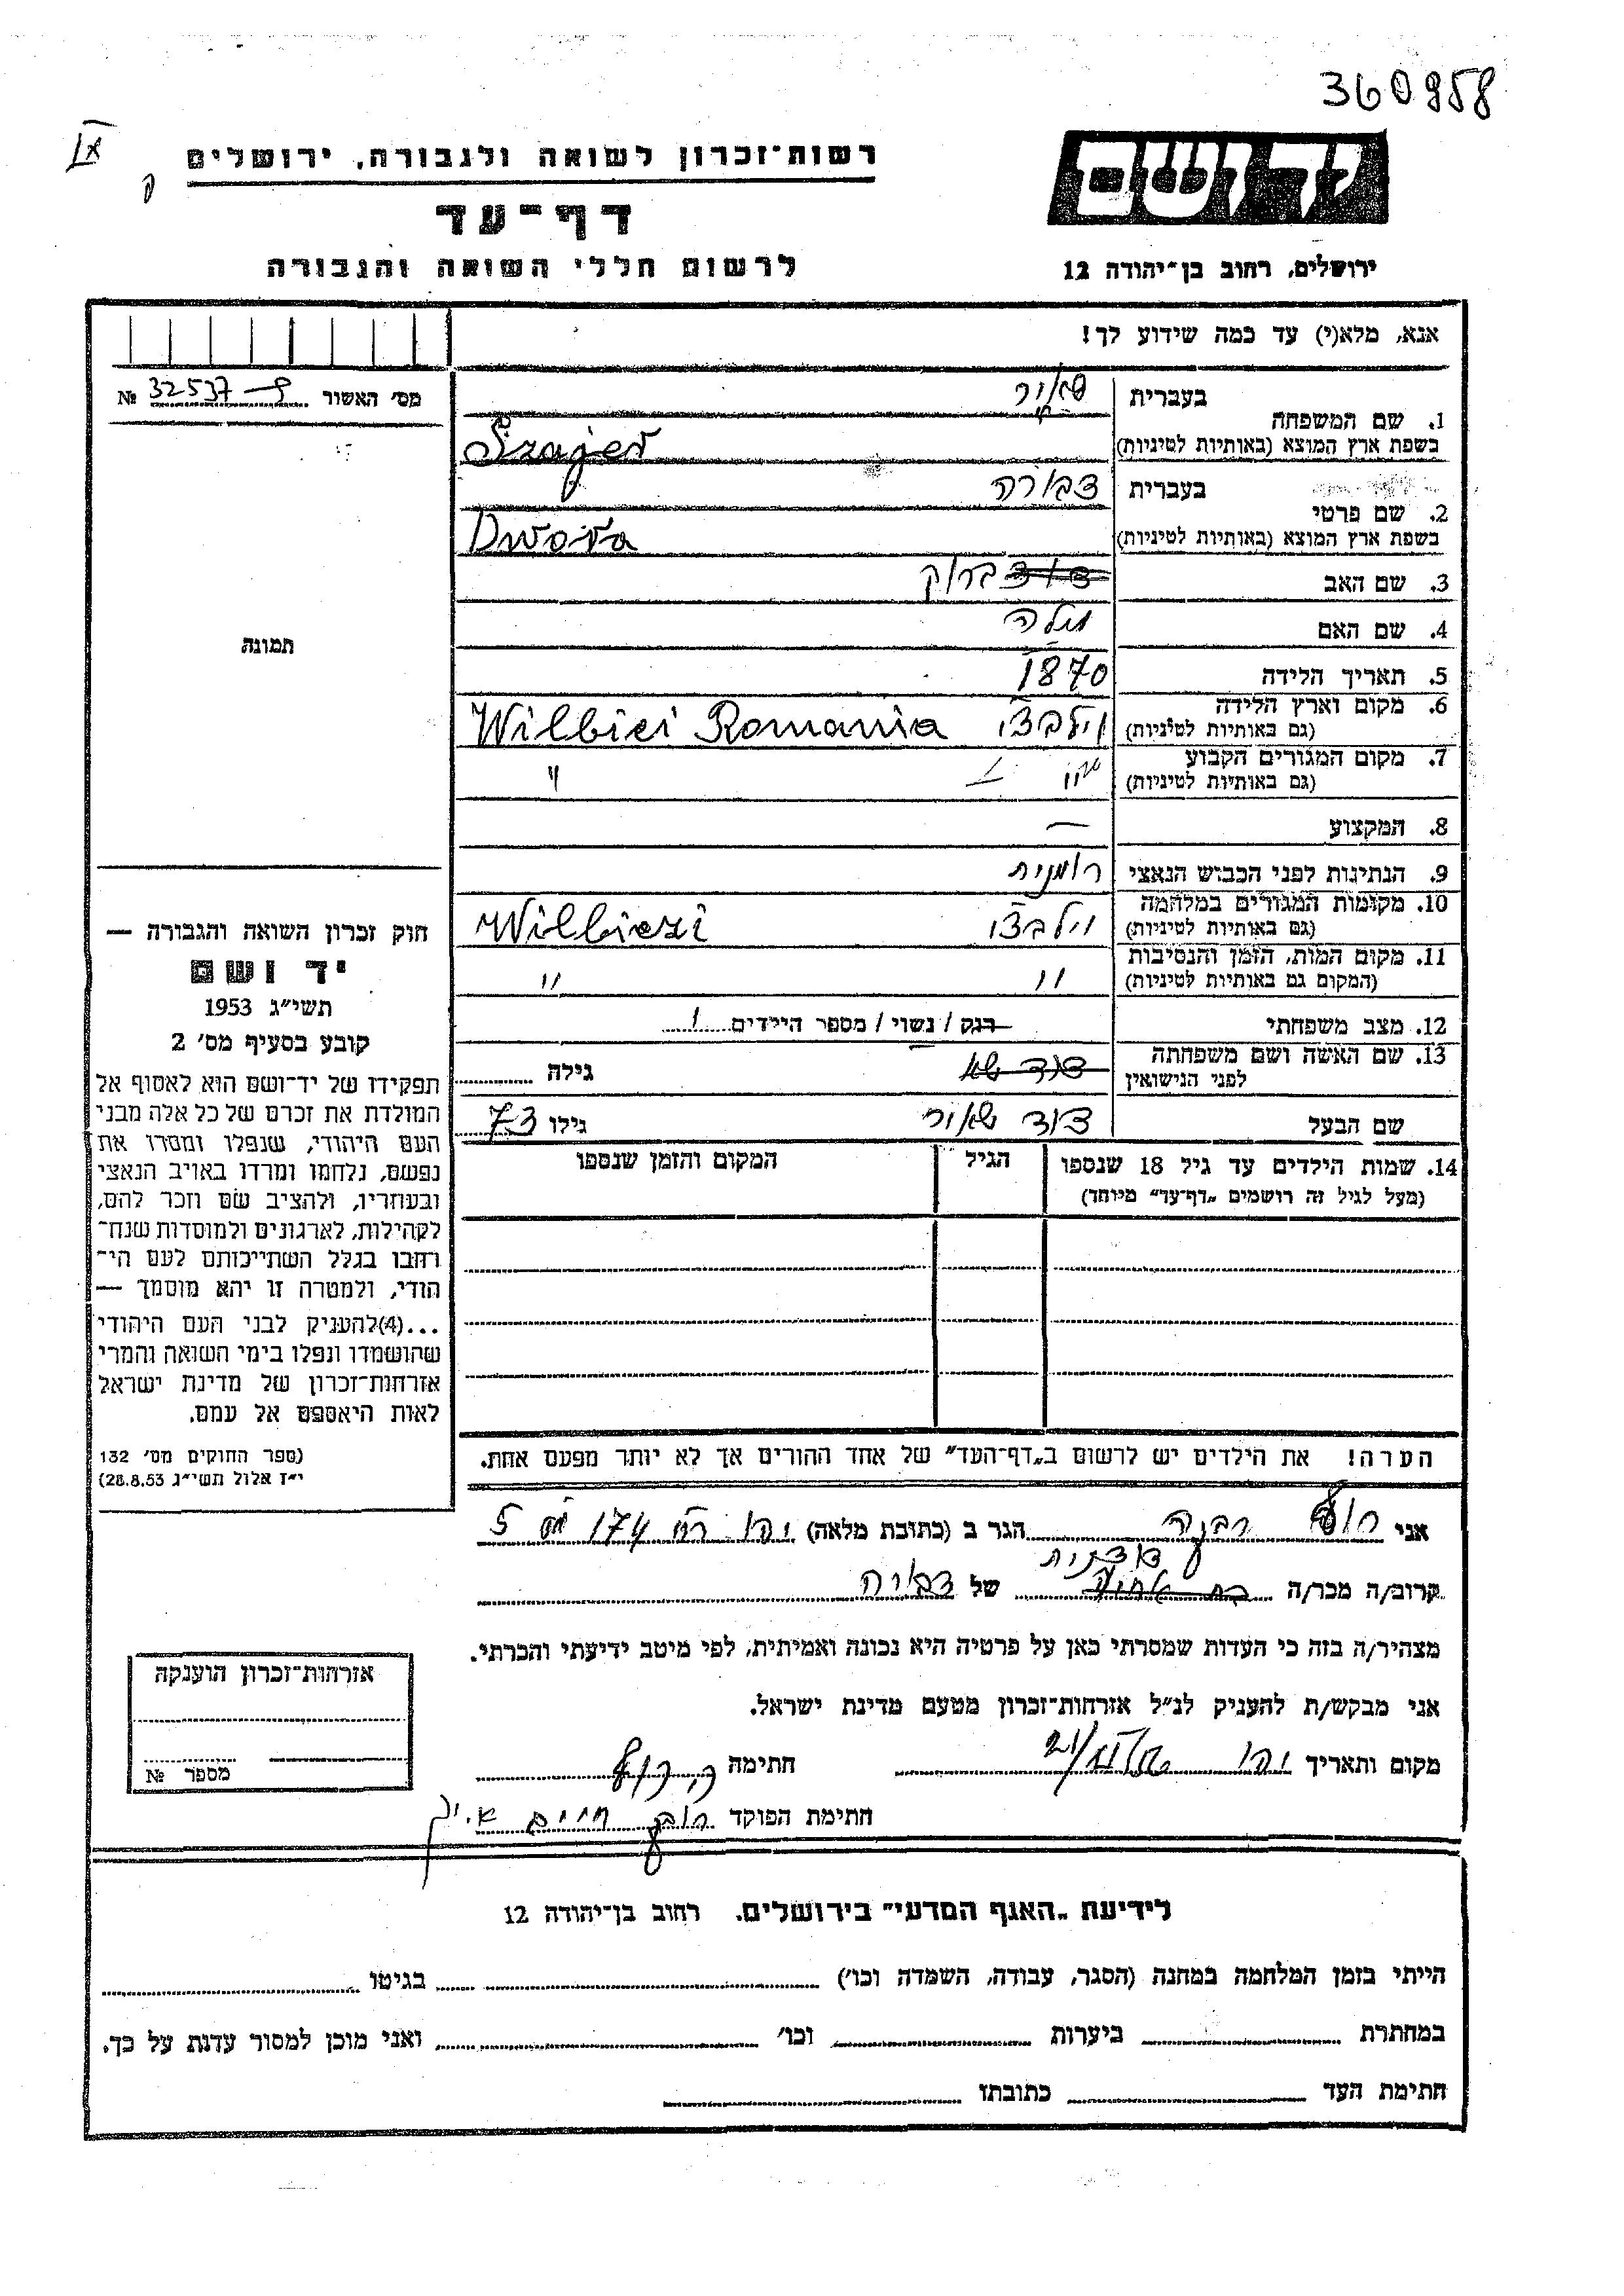 360958
IX
ק
יד ושם
רשות־זכרון לשואה ולגבורה, ירושלים
דף־עד
לרשום חללי השואה והגבורה
ירושלים, רחוב בן־יהודה 12
אנא, מלא(י) עד כמה שידוע לך!
מס׳ האשור № 32537
תמונה
1. שם המשפחה
בעברית
בשפת ארץ המוצא (באותיות לטיניות) Szajer
2. שם פרטי
בעברית דבורה
בשפת ארץ המוצא (באותיות לטיניות) Dwora
3. שם האב ברוך
4. שם האם
5. תאריך הלידה 1870
6. מקום וארץ הלידה
(גם באותיות לטיניות) וילבצי Wilbici Romania
7. מקום המגורים הקבוע
(גם באותיות לטיניות) "
8. המקצוע —
9. הנתינות לפני הכבוש הנאצי רומנית
10. מקומות המגורים במלחמה
(גם באותיות לטיניות) וילבצי Wilbiczi
11. מקום המות, הזמן והנסיבות
(המקום גם באותיות לטיניות) " "
12. מצב משפחתי רווק / נשוי / מספר הילדים 1
13. שם האשה ושם משפחתה
לפני הנישואין דוד גילה
שם הבעל דוד גילו 73
14. שמות הילדים עד גיל 18 שנספו
(מעל לגיל זה רושמים „דף־עד” מיוחד)
הגיל
המקום והזמן שנספו
חוק זכרון השואה והגבורה —
יד ושם
תשי״ג 1953
קובע בסעיף מס׳ 2
תפקידו של יד־ושם הוא לאסוף אל
המולדת את זכרם של כל אלה מבני
העם היהודי, שנפלו ומסרו את
נפשם, נלחמו ומרדו באויב הנאצי
ובעוזריו, ולהציב שם וזכר להם,
לקהילות, לארגונים ולמוסדות שנח־
רבו בגלל השתייכותם לעם הי־
הודי, ולמטרה זו יהא מוסמך —
...(4)להעניק לבני העם היהודי
שהושמדו ונפלו בימי השואה והמרי
אזרחות־זכרון של מדינת ישראל
לאות היאספם אל עמם.
(ספר החוקים מס׳ 132
י״ז אלול תשי״ג 28.8.53)
הערה! את הילדים יש לרשום ב„דף־העד” של אחד ההורים אך לא יותר מפעם אחת.
אני הגר ב (כתובת מלאה) 174 5
קרוב/ה מכר/ה של דבורה
מצהיר/ה בזה כי העדות שמסרתי כאן על פרטיה היא נכונה ואמיתית, לפי מיטב ידיעתי והכרתי.
אני מבקש/ת להעניק לנ״ל אזרחות־זכרון מטעם מדינת ישראל.
מקום ותאריך חתימה
חתימת הפוקד חיים
אזרחות־זכרון הוענקה
מספר №
לידיעת „האגף המדעי” בירושלים. רחוב בן־יהודה 12
הייתי בזמן המלחמה במחנה (הסגר, עבודה, השמדה וכו׳) בגיטו
במחתרת ביערות וכו׳ ואני מוכן למסור עדות על כך.
חתימת העד כתובתו